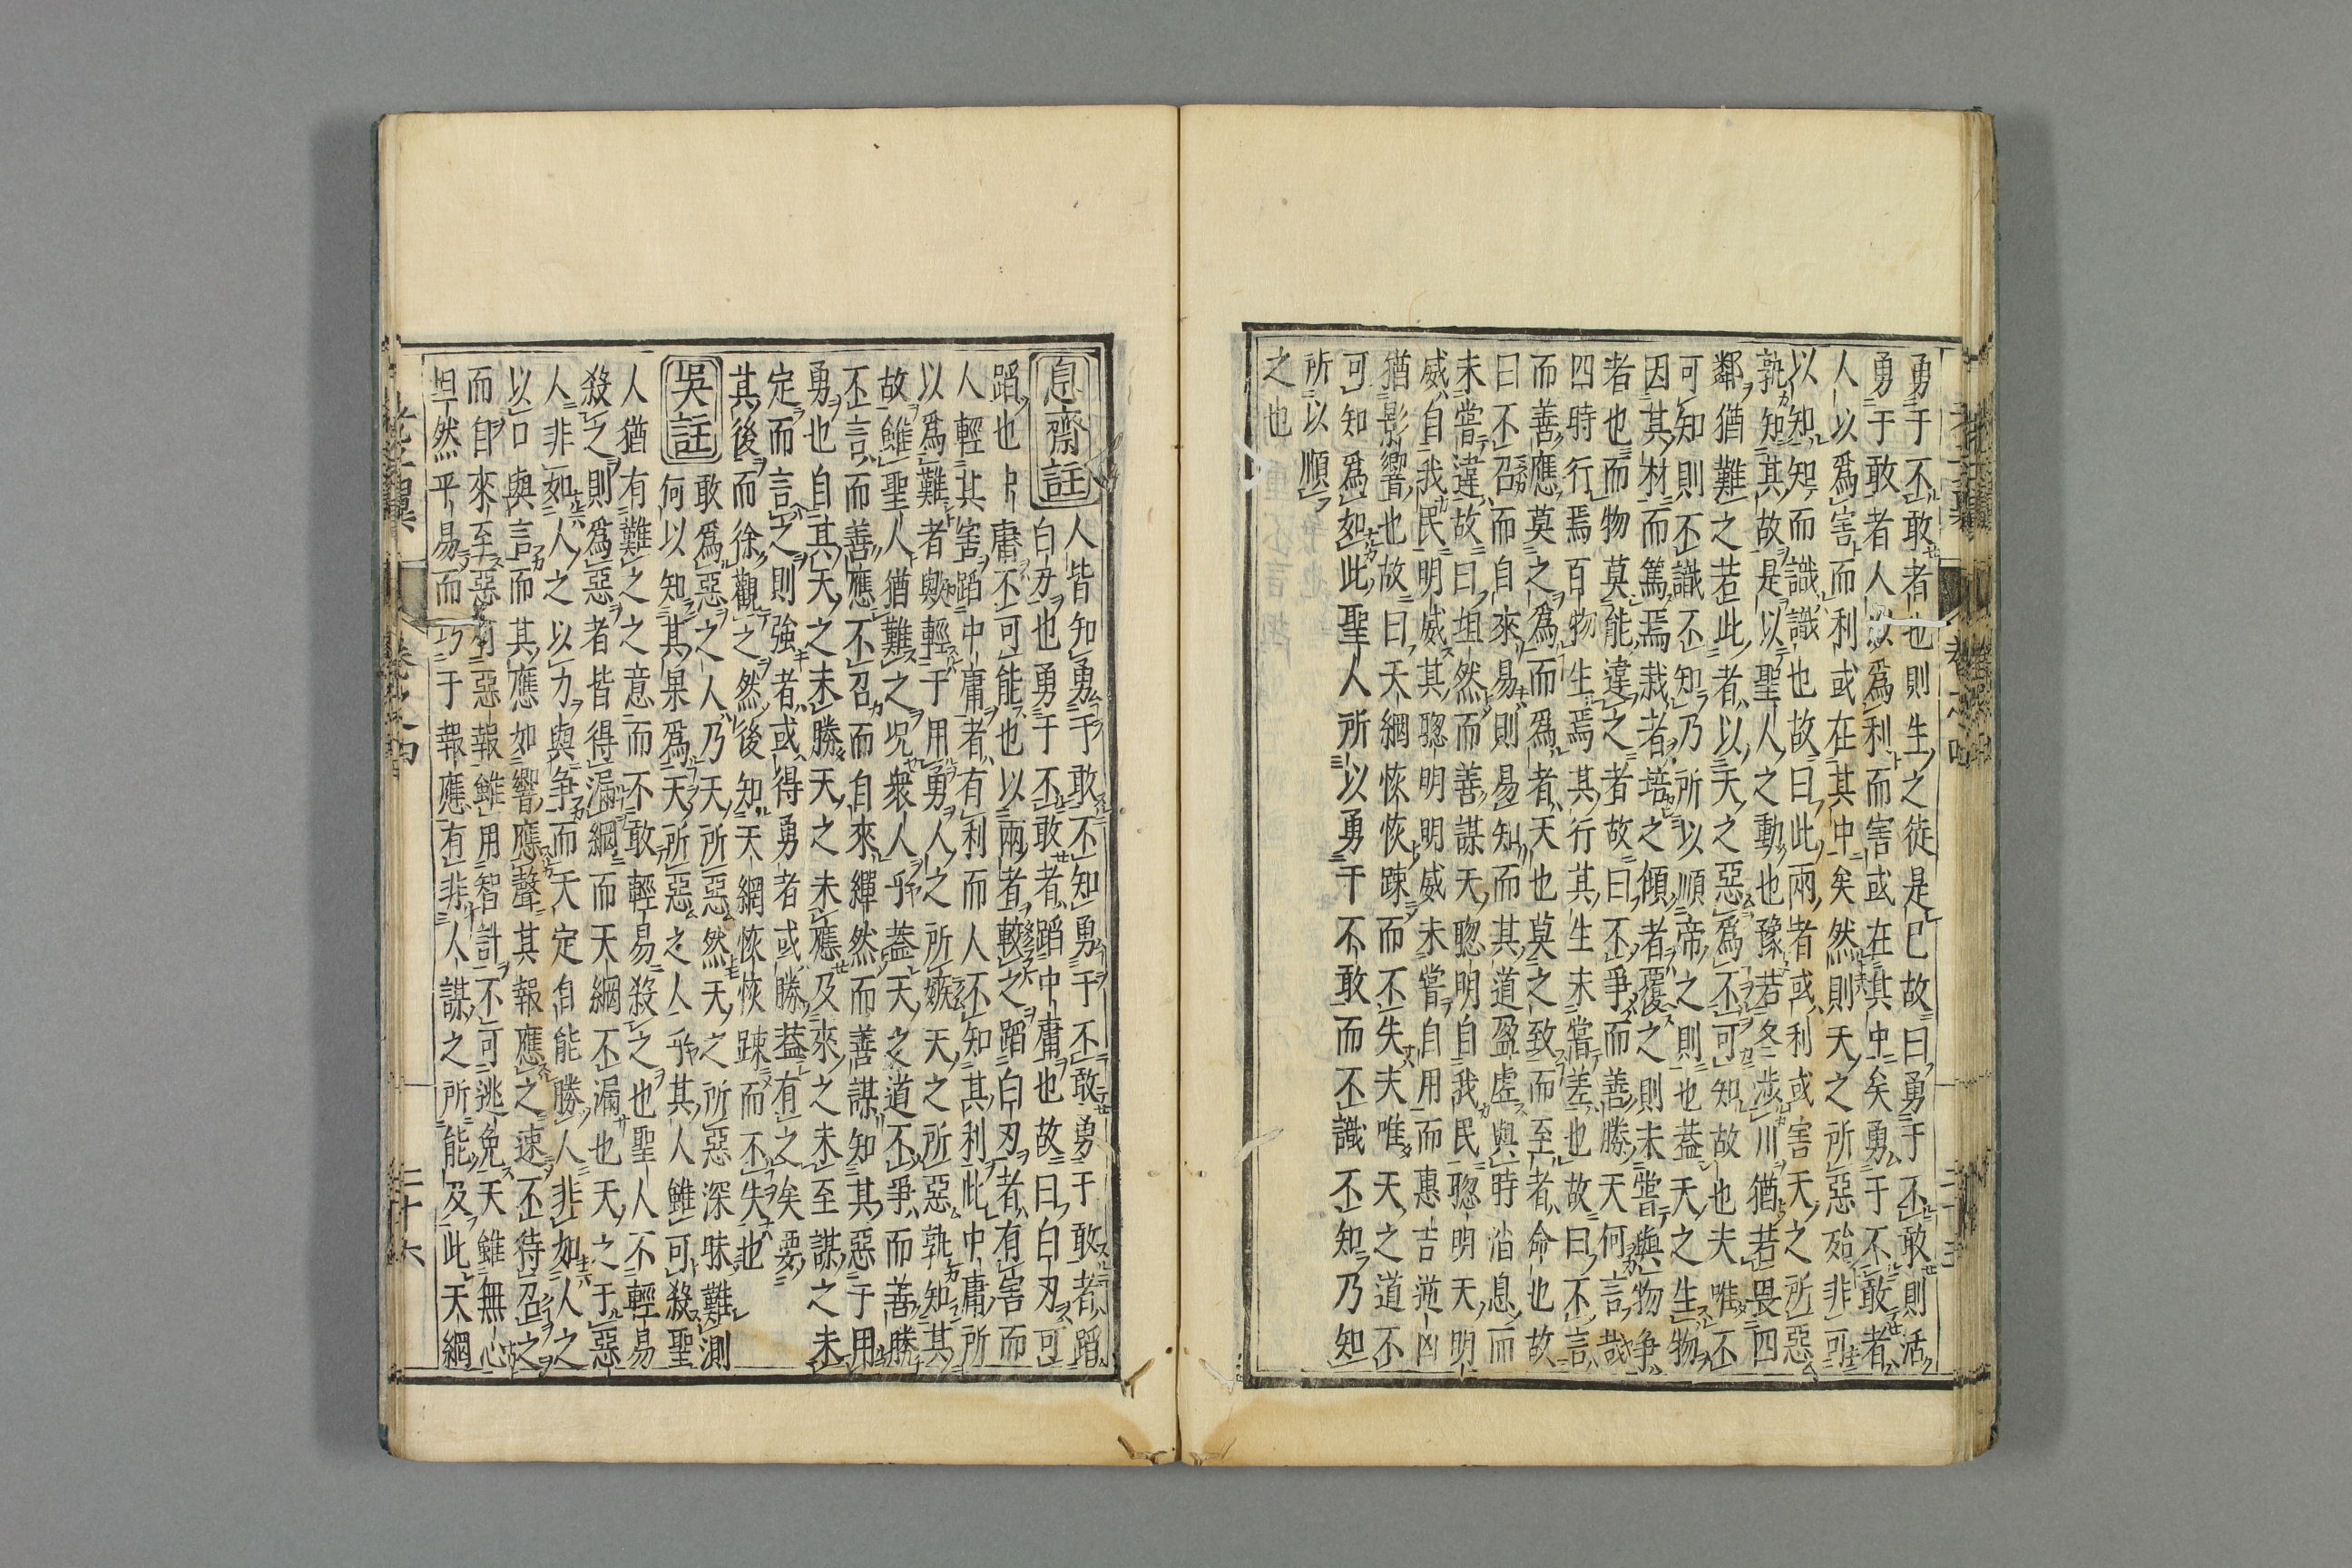 勇于不敢者也則生之徒是已故曰勇于不敢則活
勇于敢者人以爲利而害或在其中矣勇于不敢者
人以爲害而利或在其中矣然則天之所惡殆非可
以知知而識識也故曰此兩者或利或害天之所惡
孰知其故是以聖人之動也豫若冬涉川猶若畏四
鄰猶難之若此者以天之惡爲不可知故也夫唯不
可知則不識不知乃所以順帝之則也葢天之生物
因其材而篤焉栽者培之傾者覆之則未嘗與物爭
者也而物莫能違之者故曰不爭而善勝天何言哉
四時行焉百物生焉其行其生未嘗差也故曰不言
而善應莫之爲而爲者天也莫之致而至者命也故
曰不召而自來易則易知而其道盈虛與時消息而
未嘗違故曰坦然而善謀天聰明自我民聰明天明
威自我民明威其聰明明威未嘗自用而惠吉逆凶
猶影響也故曰天網恢恢踈而不失夫唯天之道不
可知爲如此聖人所以勇于不敢而不識不知乃知
所以順
之也
息齋註 人皆知勇于敢不知勇于不敢勇于敢者蹈
白刃也勇于不敢者蹈中庸也故曰白刃可
蹈也中庸不可能也以兩者較之蹈白刃者有害而
人輕其害蹈中庸者有利而人不知其利此中庸所
以爲難者歟輕于用勇人之所嫉天之所惡孰知其
故雖聖人猶難之况衆人乎葢天之道不爭而善勝
不言而善應不召而自來繟然而善謀知其惡于用
勇也自其天之未勝天之未應及來之未至謀之未
定而言之則強者或得勇者或勝葢有之矣要
其後而徐觀之然後知天網恢恢踈而不失也
吳註 敢爲惡之人乃天所惡然天之所惡深昧難測
何以知其果爲天所惡之人乎其人雖可殺聖
人猶有難之之意而不敢輕易殺之也聖人不輕易
殺之則爲惡者皆得漏網而天網不漏也天之于惡
人非如人之以力與爭而天定自能勝人非如人之
以口與言而其應如響應聲其報應之速不待召之
而自來至惡有惡報雖用智計不可逃免天雖無心
坦然平易而巧于報應有非人謀之所能及此天網
老子翼 卷之四 二十六